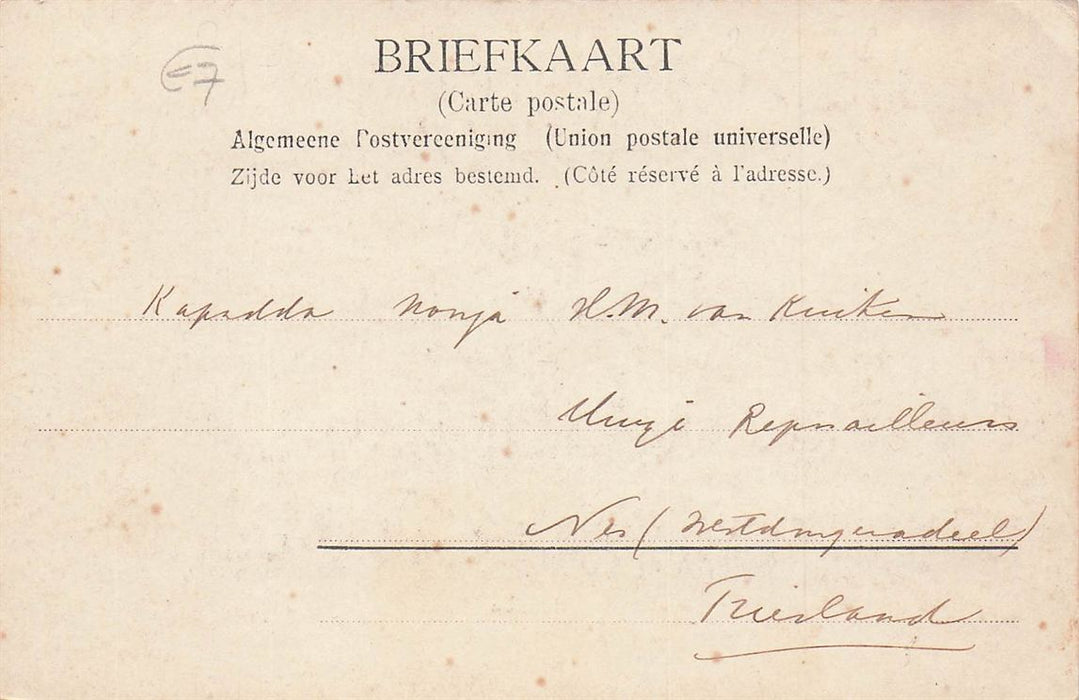 €7
BRIEFKAART
(Carte postale)
Algemeene Postvereeniging (Union postale universelle)
Zijde voor het adres bestemd. (Côté réservé à l'adresse.)
Kapadda Nonja H.M. van Kuiken
Repnailleurs
Nes (Westdongeradeel)
Friesland